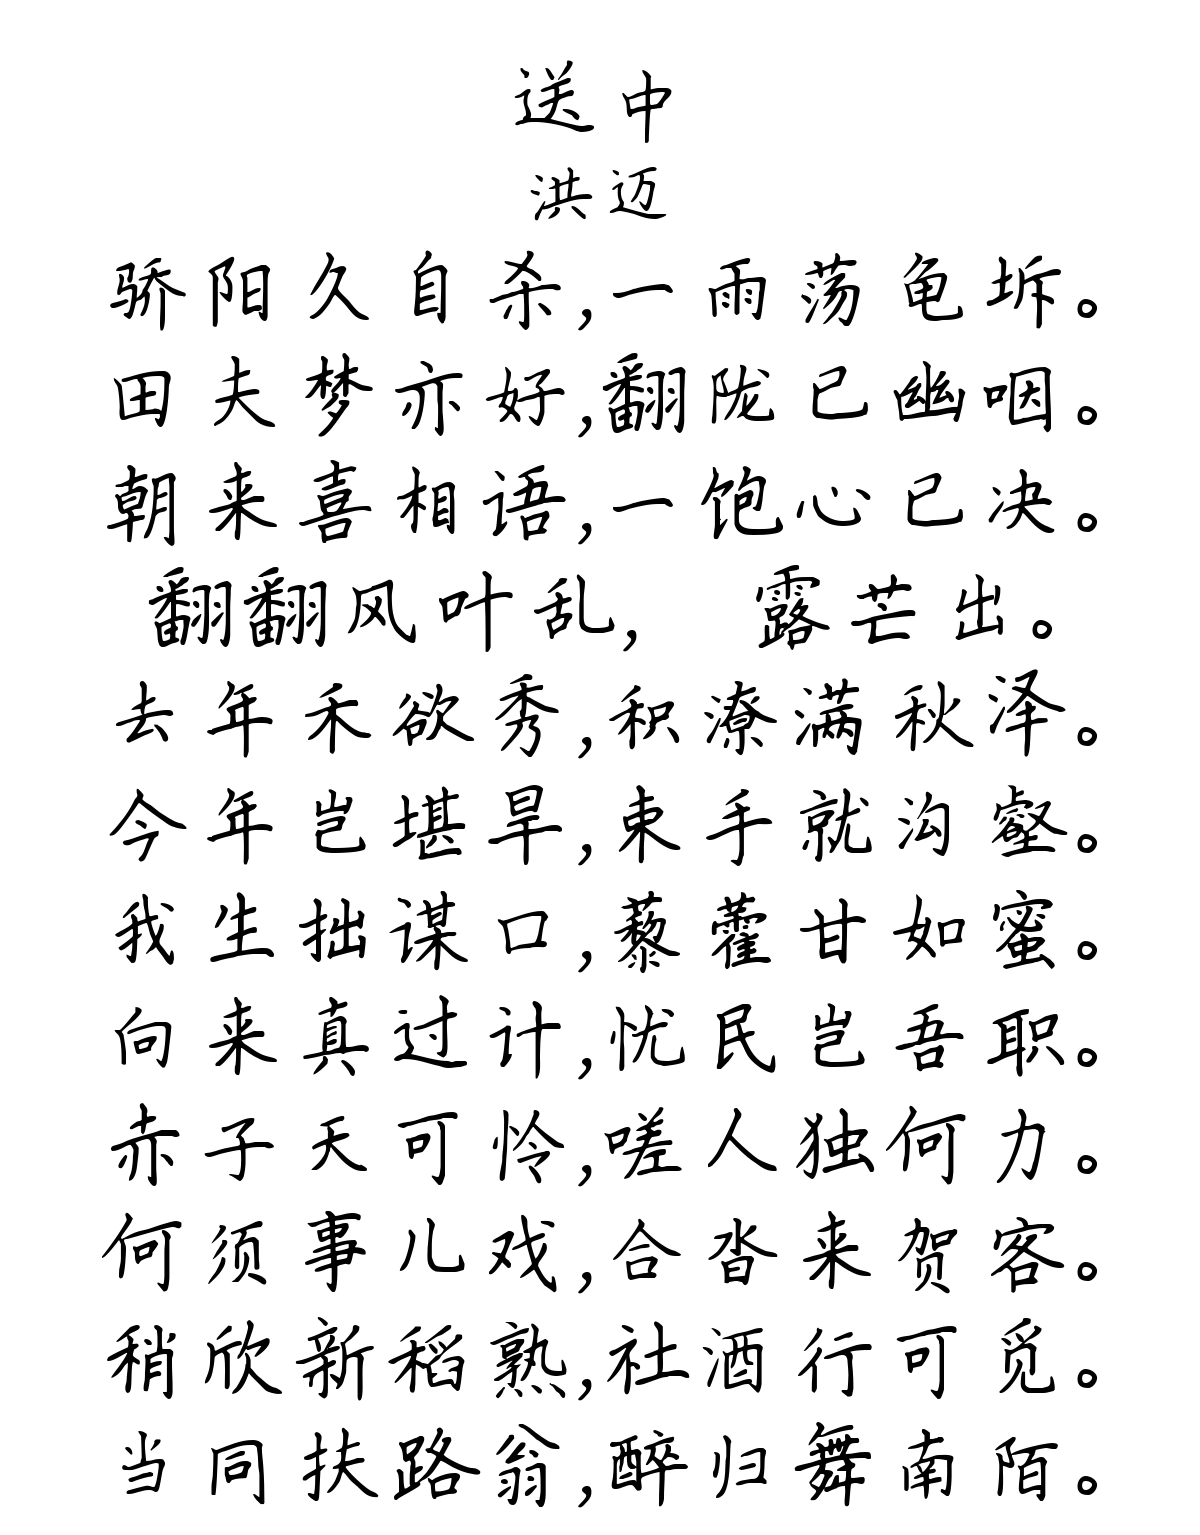 送中
洪迈
骄阳久自杀,一雨荡龟坼。
田夫梦亦好,翻陇已幽咽。
朝来喜相语,一饱心已决。
翻翻风叶乱,　露芒出。
去年禾欲秀,积潦满秋泽。
今年岂堪旱,束手就沟壑。
我生拙谋口,藜藿甘如蜜。
向来真过计,忧民岂吾职。
赤子天可怜,嗟人独何力。
何须事儿戏,合沓来贺客。
稍欣新稻熟,社酒行可觅。
当同扶路翁,醉归舞南陌。